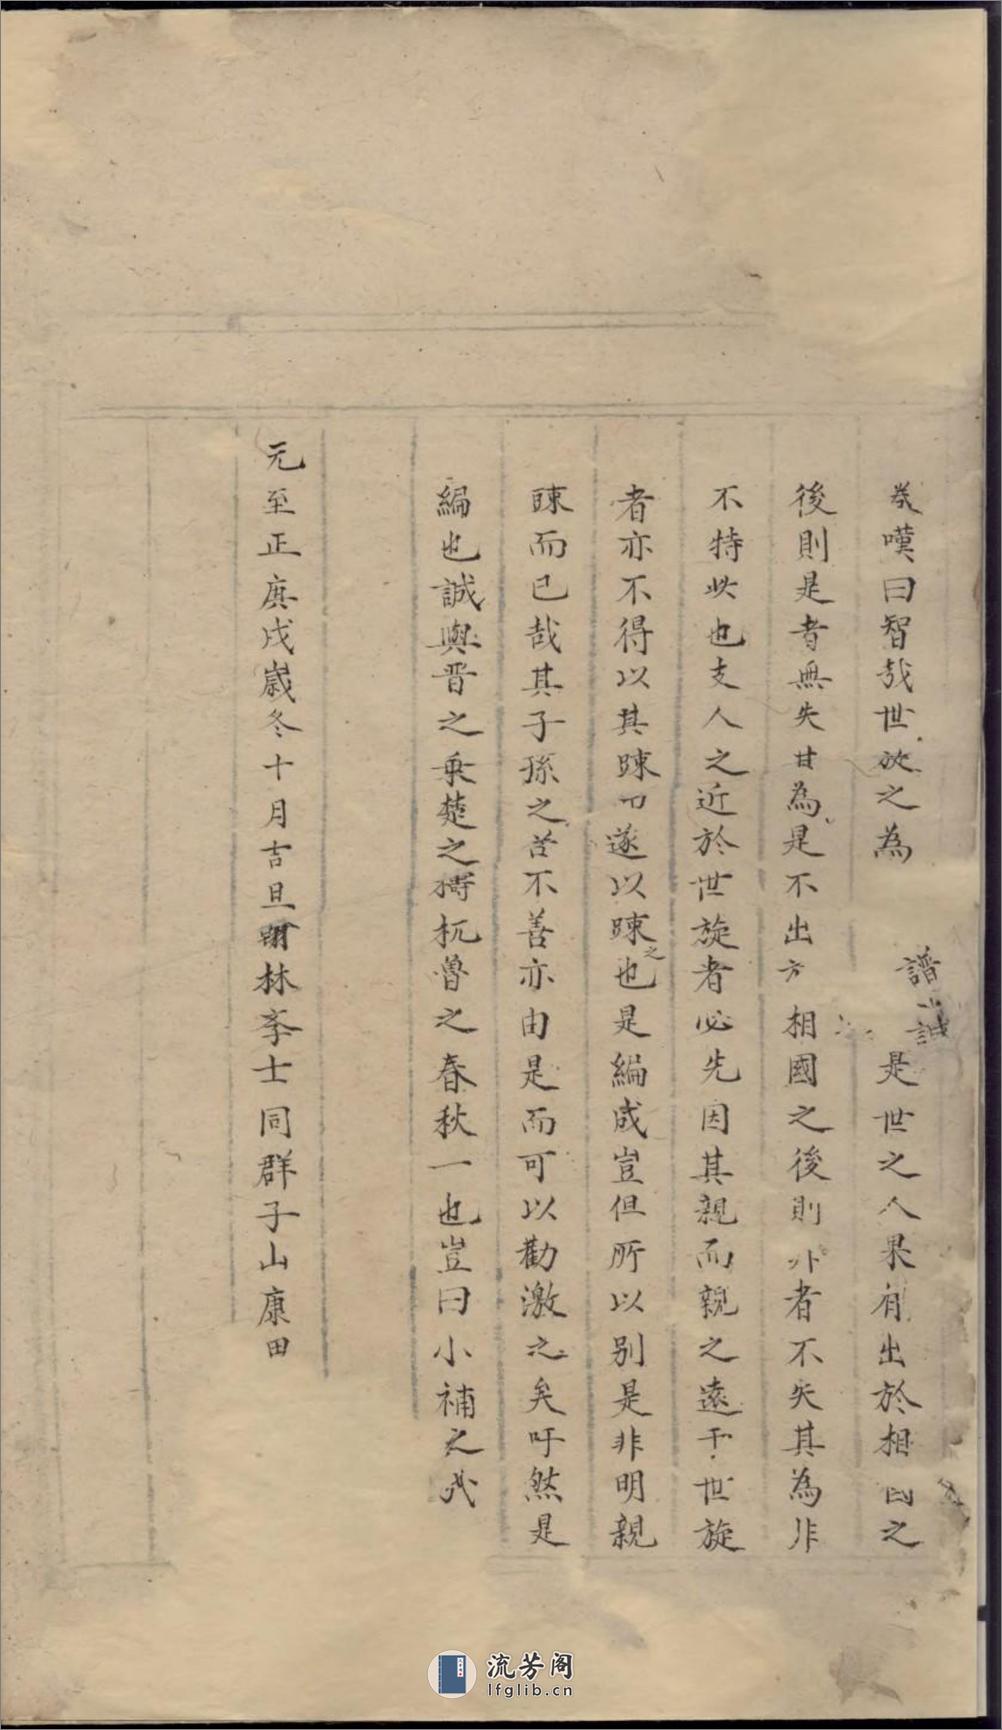 嘆曰智哉世旋之為譜誠是世之人果有出於相國之
後則是者無失其為是不出於相國之後則非者不失其為非
不特此也支人之近於世旋者必先因其親而親之遠于世旋
者亦不得以其踈而遂以踈之也是編成豈但所以別是非明親
踈而已哉其子孫之善不善亦由是而可以勸激之矣吁然是
編也誠與晋之乘楚之梼杌魯之春秋一也豈曰小補之哉
元至正庚戌歲冬十月吉旦翰林李士同群子山康田
流芳阁
lfglib.cn